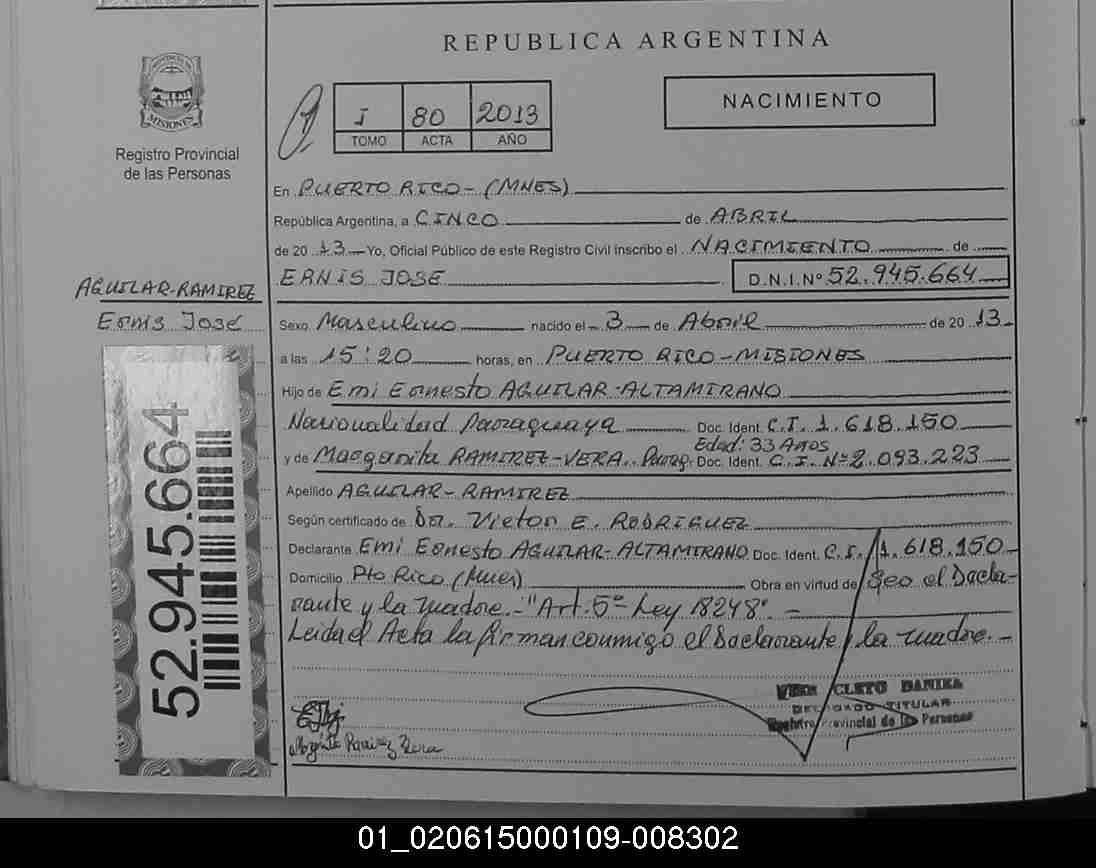 REPUBLICA ARGENTINA
PROVINCIA DE
MISIONES
Registro Provincial
de las Personas
I 80 2013
TOMO ACTA AÑO
NACIMIENTO
En PUERTO RICO - (MNES)
República Argentina, a CINCO de ABRIL
de 20 13 Yo, Oficial Público de este Registro Civil inscribo el NACIMIENTO de
ERNIS JOSE D.N.I. Nº 52.945.664
AGUILAR-RAMIREZ
Ernis José
Sexo Masculino nacido el 3 de Abril de 20 13
a las 15:20 horas, en PUERTO RICO-MISIONES
Hijo de Emi Ernesto AGUILAR-ALTAMIRANO
Nacionalidad Paraguaya Doc. Ident. C.I. 1.618.150
Edad: 33 Años
y de Margarita RAMIREZ-VERA. Parag. Doc. Ident. C.I. Nº 2.093.223
Apellido AGUILAR-RAMIREZ
Según certificado de Dr. Victor E. RODRIGUEZ
Declarante Emi Ernesto AGUILAR-ALTAMIRANO Doc. Ident. C.I. 1.618.150
Domicilio Pto Rico (Mnes) Obra en virtud de Seo el Decla-
rante y la madre.- "Art. 5º- Ley 18248" -
Leida el Acta la firman conmigo el Declarante y la madre.-
52.945.664
CLETO DANIKA
DELEGADO TITULAR
Registro Provincial de las Personas
Margarita Ramirez Vera
01_020615000109-008302